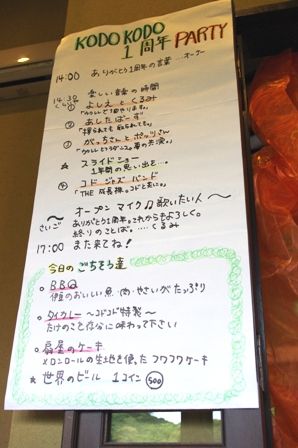 KODO KODO
1周年 PARTY
14:00 ありがとう1周年の言葉 …オーナー
14:30 楽しい音の時間
くらい
① よしえとくるみ
② あしたばーず
③ がっちさんとポッツさん
★ スライドショー
1年間の思い出を…
④ コドジャズバンド
「THE 成長株。コドと共に。」
〜 オープンマイク♫歌いたい人 〜
さいご ありがとう1周年。これからもよろしく。
終りのことば。…くるみ
17:00 また来てね!
今日のごちそう達
◎ BBQ
伊豆のおいしい魚・肉・やさいがたっぷり
◎ タイカレー 〜コドコド特製〜
たけのこ存分に味わって下さい
◎ 扇屋のケーキ
メロンロールの生地を使ったフワフワケーキ
★ 世界のビール 1コイン 500